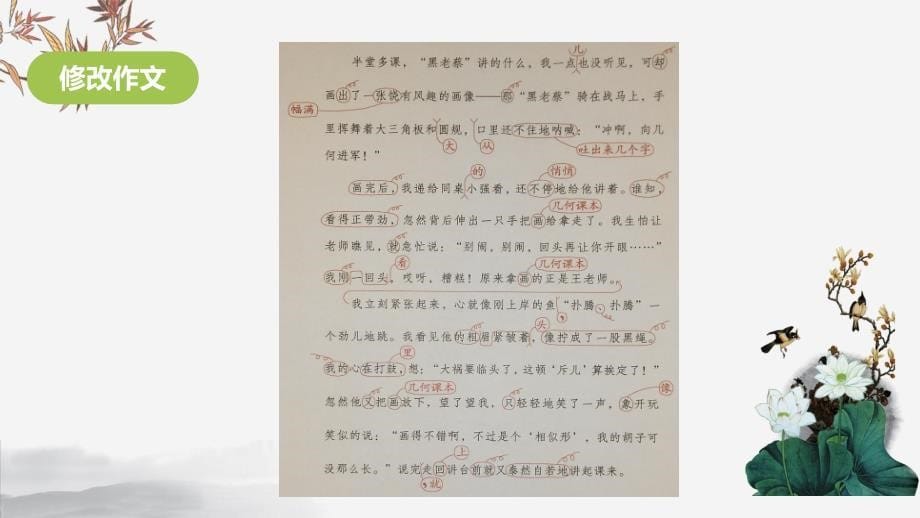 修改作文
儿
半堂多课，“黑老蔡”讲的什么，我一点也没听见，可却
画出了一张饶有风趣的画像——那“黑老蔡”骑在战马上，手
幅满
里挥舞着大三角板和圆规，口里还不住地呐喊：“冲啊，向几
大 从 吐出来几个字
何进军！”
的 悄悄
画完后，我递给同桌小强看，还不停地给他讲着。谁知，
几何课本
看得正带劲，忽然背后伸出一只手把画给拿走了。我生怕让
老师瞧见，就急忙说：“别闹，别闹，回头再让你开眼……”
看 几何课本
我刚一回头。哎呀，糟糕！原来拿画的正是王老师。
我立刻紧张起来，心就像刚上岸的鱼“扑腾，扑腾”一
，
个劲儿地跳。我看见他的粗眉紧皱着，像拧成了一股黑绳。
头
里
我的心在打鼓，想：“大祸要临头了，这顿‘斥儿’算挨定了！”
几何课本 像
忽然他又把画放下，望了望我，只轻轻地笑了一声，象开玩
笑似的说：“画得不错啊，不过是个‘相似形’，我的胡子可
上
没那么长。”说完走回讲台前就又泰然自若地讲起课来。
，就